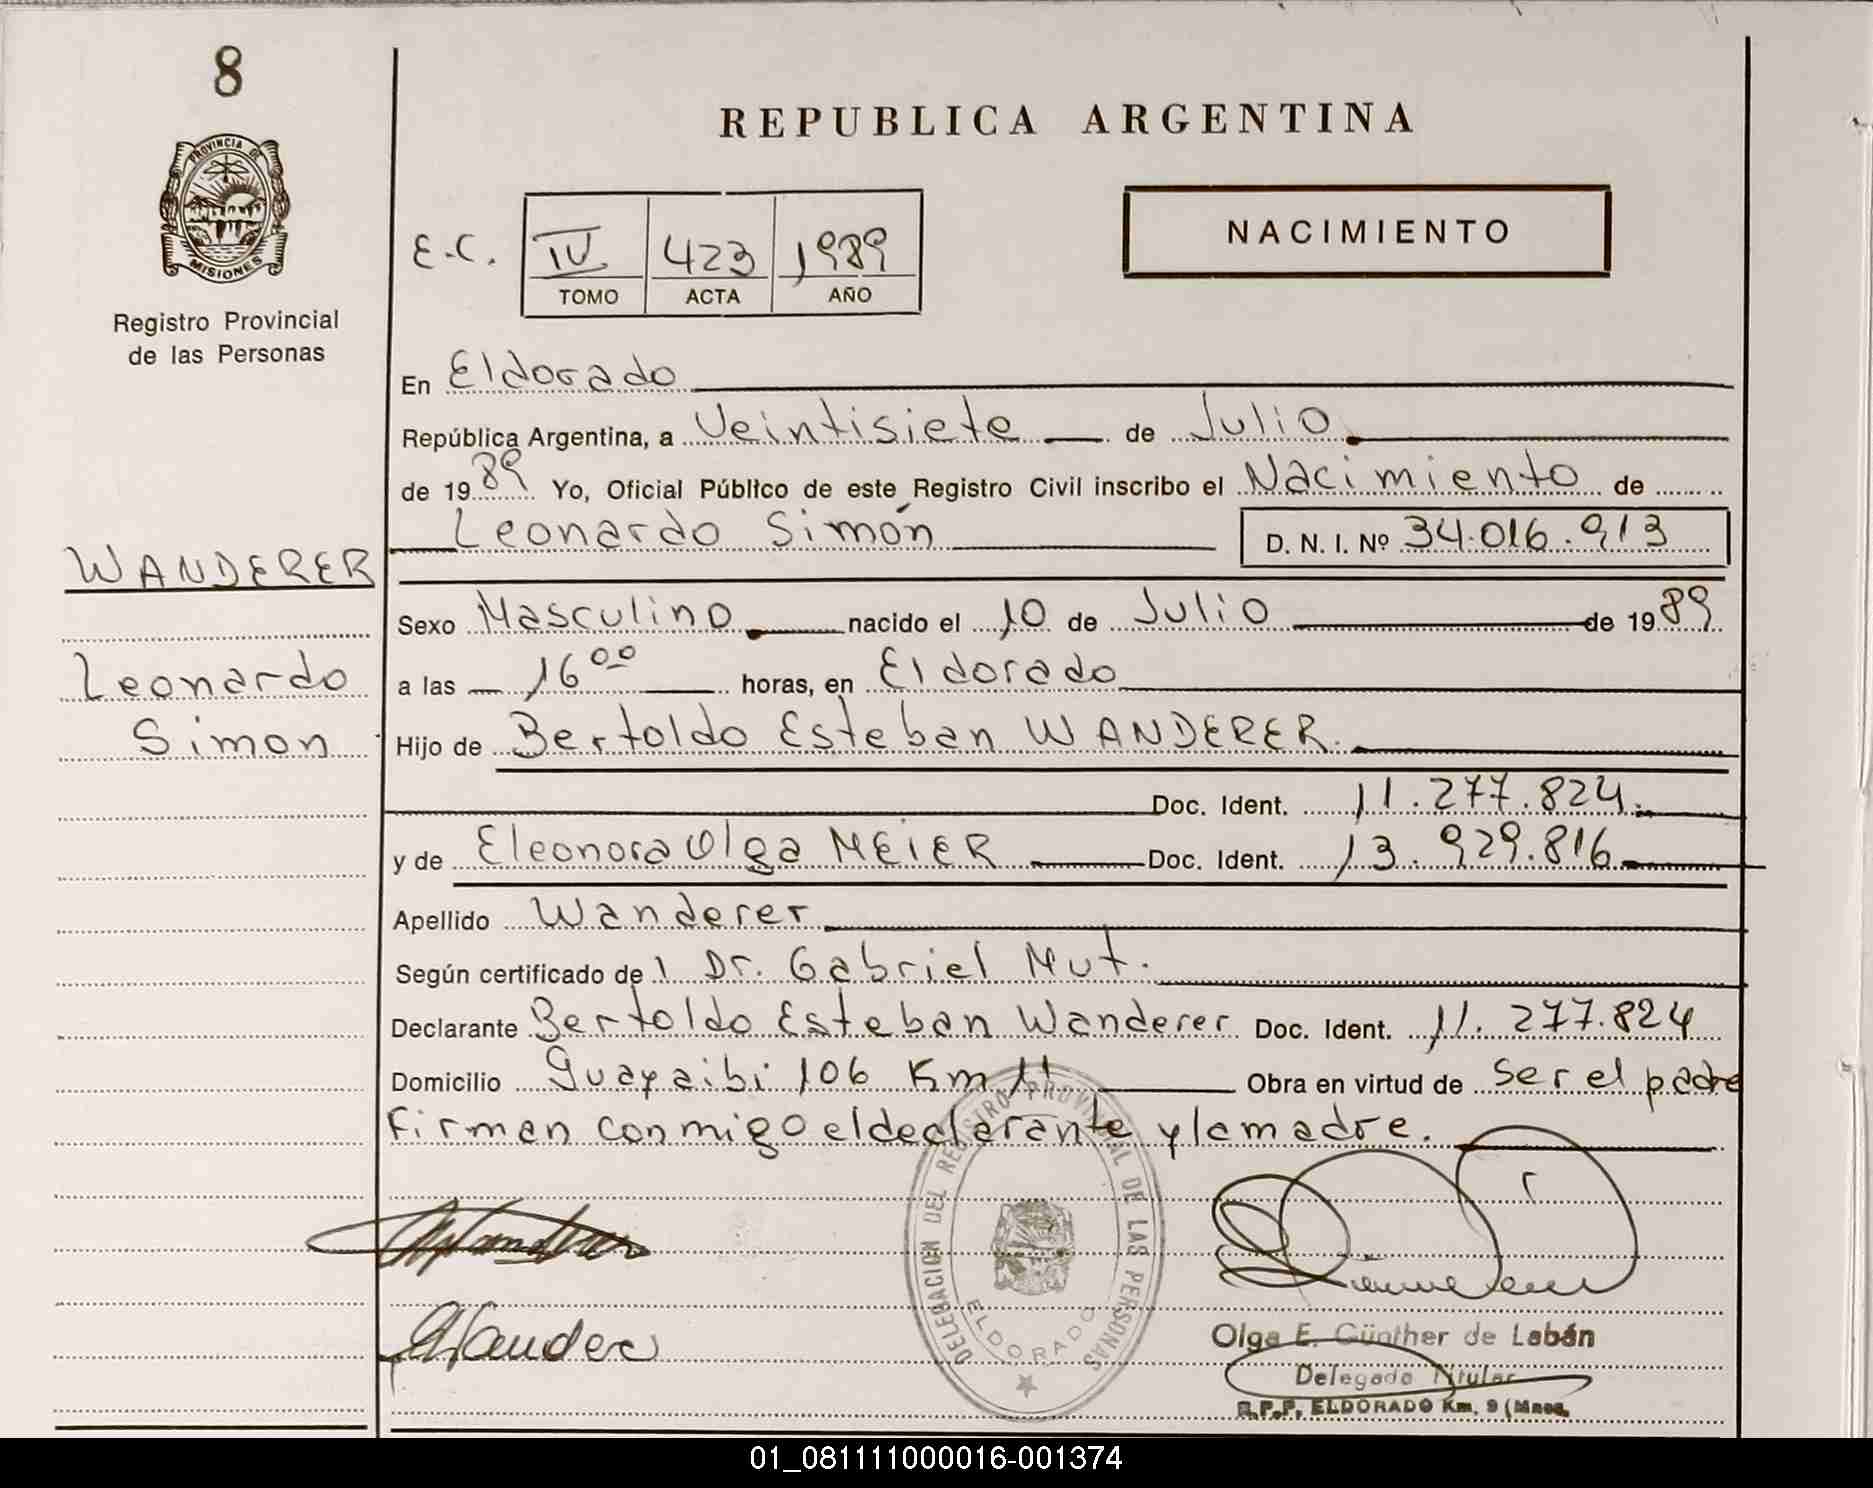 8
PROVINCIA DE
MISIONES
Registro Provincial
de las Personas
WANDERER
Leonardo
Simon
REPUBLICA ARGENTINA
E.C. IV 423 1989
TOMO ACTA AÑO
NACIMIENTO
En Eldorado
República Argentina, a Veintisiete de Julio
de 1989 Yo, Oficial Público de este Registro Civil inscribo el Nacimiento de
Leonardo Simón D. N. I. Nº 34.016.913
Sexo Masculino nacido el 10 de Julio de 1989
a las 16 00 horas, en Eldorado
Hijo de Bertoldo Esteban WANDERER.
Doc. Ident. 11.277.824.
y de Eleonora Olga MEIER Doc. Ident. 13.929.816
Apellido Wanderer
Según certificado de Dr. Gabriel Mut.
Declarante Bertoldo Esteban Wanderer Doc. Ident. 11.277.824
Domicilio Guayaibi 106 Km 11 Obra en virtud de ser el padre
Firman conmigo el declarante y la madre.
DELEGACION DEL REGISTRO PROVINCIAL DE LAS PERSONAS
ELDORADO
Olga E. Günther de Labán
Delegado Titular
R.P.P. ELDORADO Km. 9 (Mnes.
01_081111000016-001374